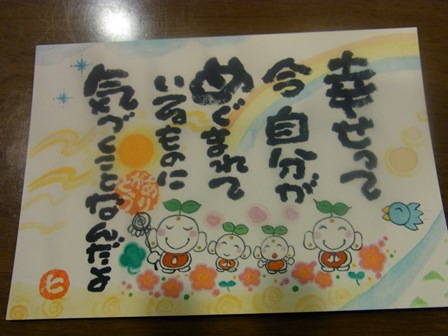 幸せって
今 自分が
めぐまれて
いるものに
気づくことなんだよ
ありがとう